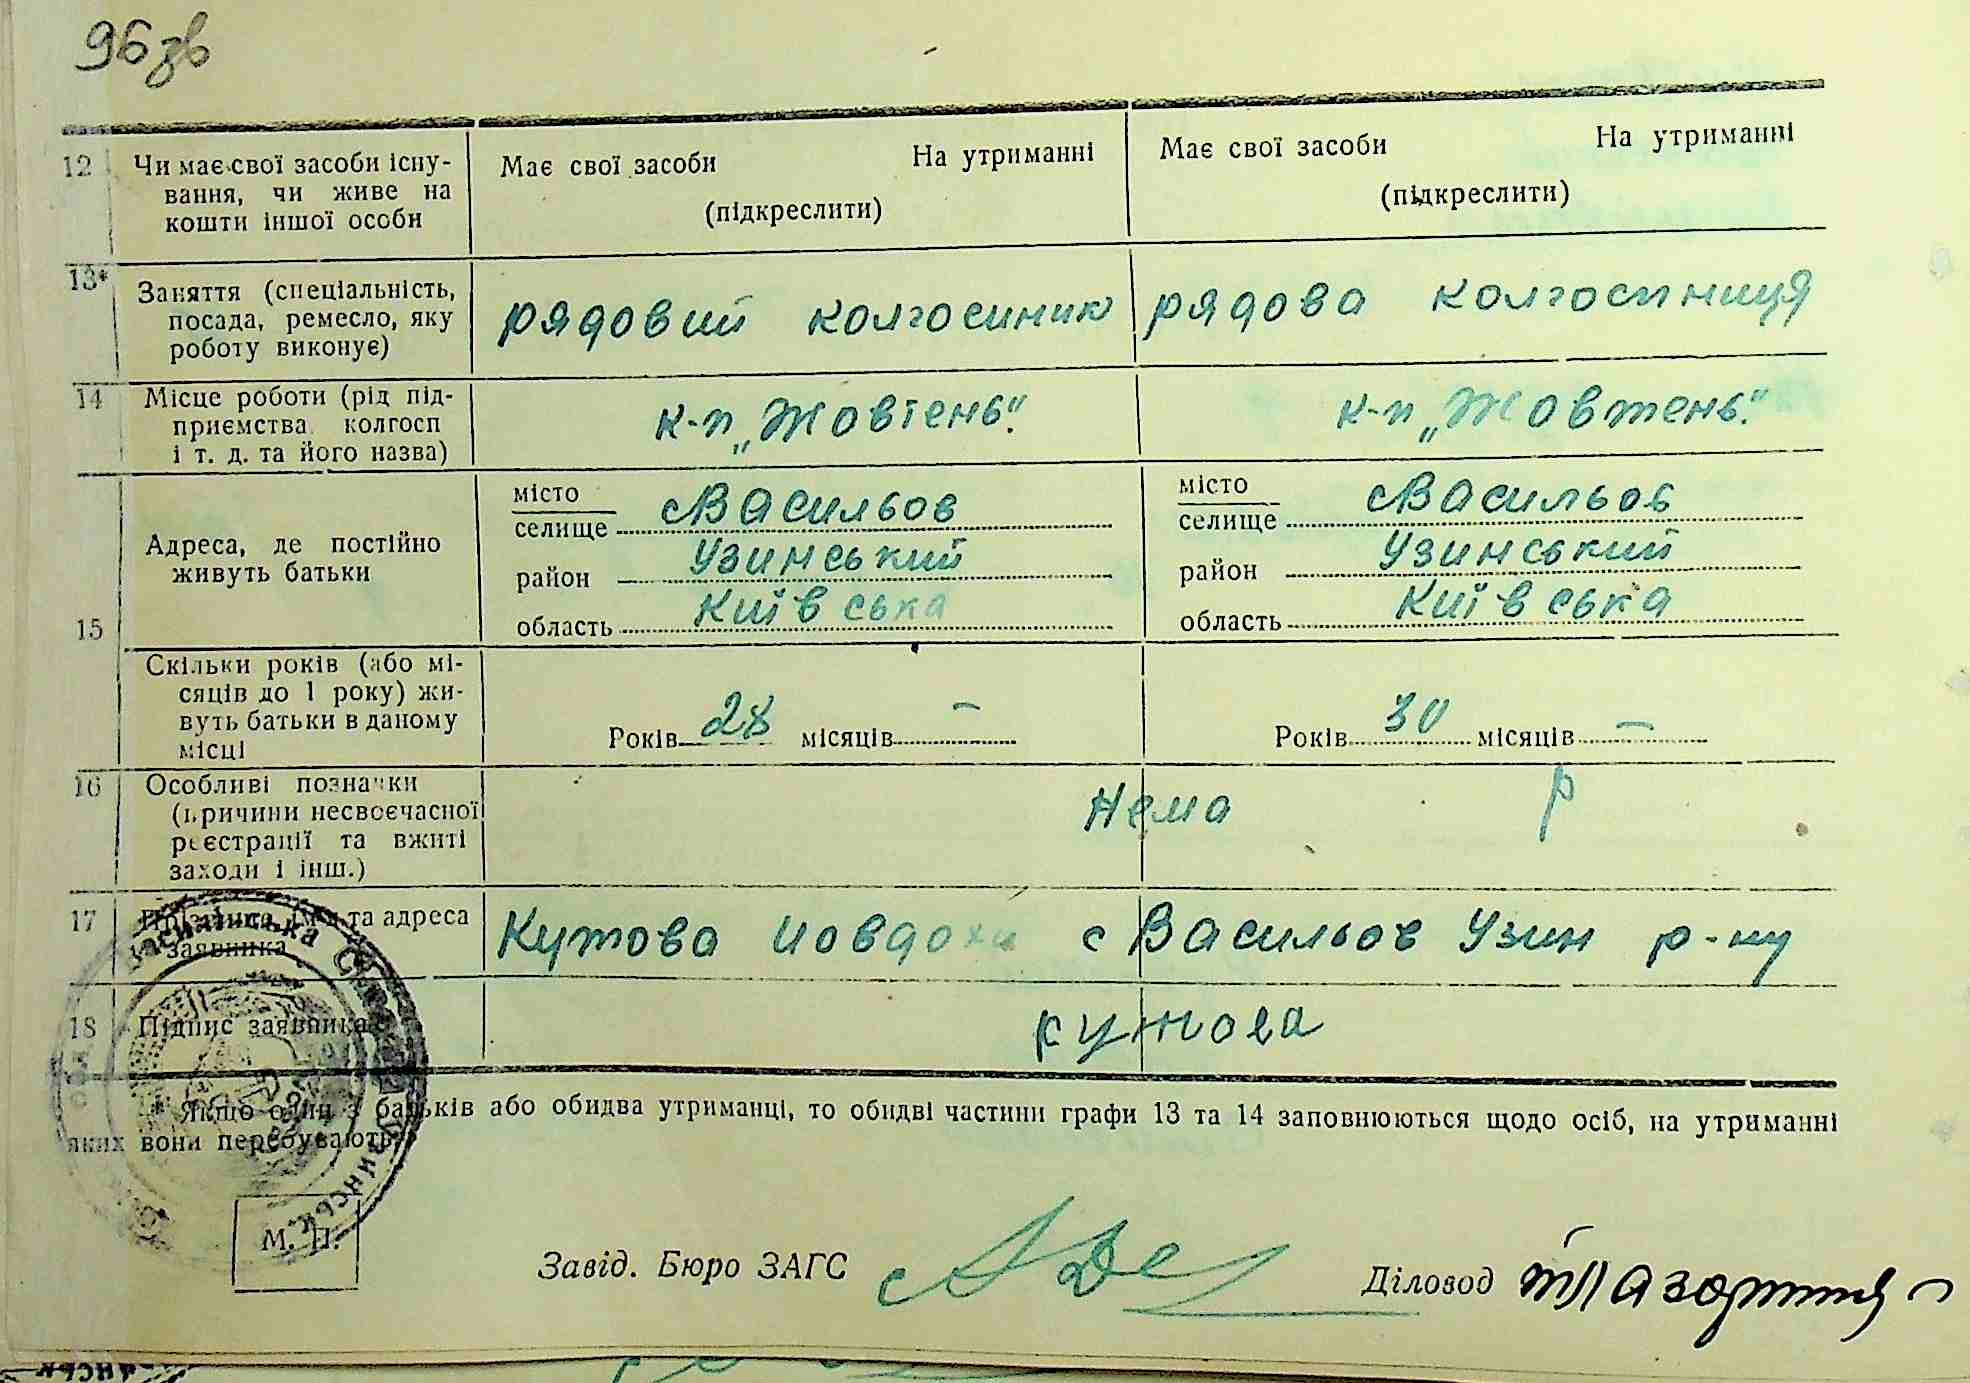 96 зв
12 Чи має свої засоби існу- Має свої засоби На утриманні Має свої засоби На утриманні
вання, чи живе на (підкреслити) (підкреслити)
кошти іншої особи
13* Заняття (спеціальність, рядовий колгоспник рядова колгоспниця
посада, ремесло, яку
роботу виконує)
14 Місце роботи (рід під- к-п „Жовтень“. к-п „Жовтень“.
приємства, колгосп
і т. д. та його назва)
15 Адреса, де постійно
живуть батьки
місто
селище с Васильов
район Узинський
область Київська
місто
селище с Васильов
район Узинський
область Київська
Скільки років (або мі-
сяців до 1 року) жи-
вуть батьки в даному
місці
Років 28 місяців – Років 30 місяців –
16 Особливі позначки Нема
(причини несвоєчасної
реєстрації та вжиті
заходи і інш.)
17 Прізвище, ім'я та адреса Кутова Йовдоха с Васильов Узин р-ну
заявника
18 Підпис заявника Кутова
* Якщо один з батьків або обидва утриманці, то обидві частини графи 13 та 14 заповнюються щодо осіб, на утриманні
яких вони перебувають.
М. П.
Завід. Бюро ЗАГС Діловод